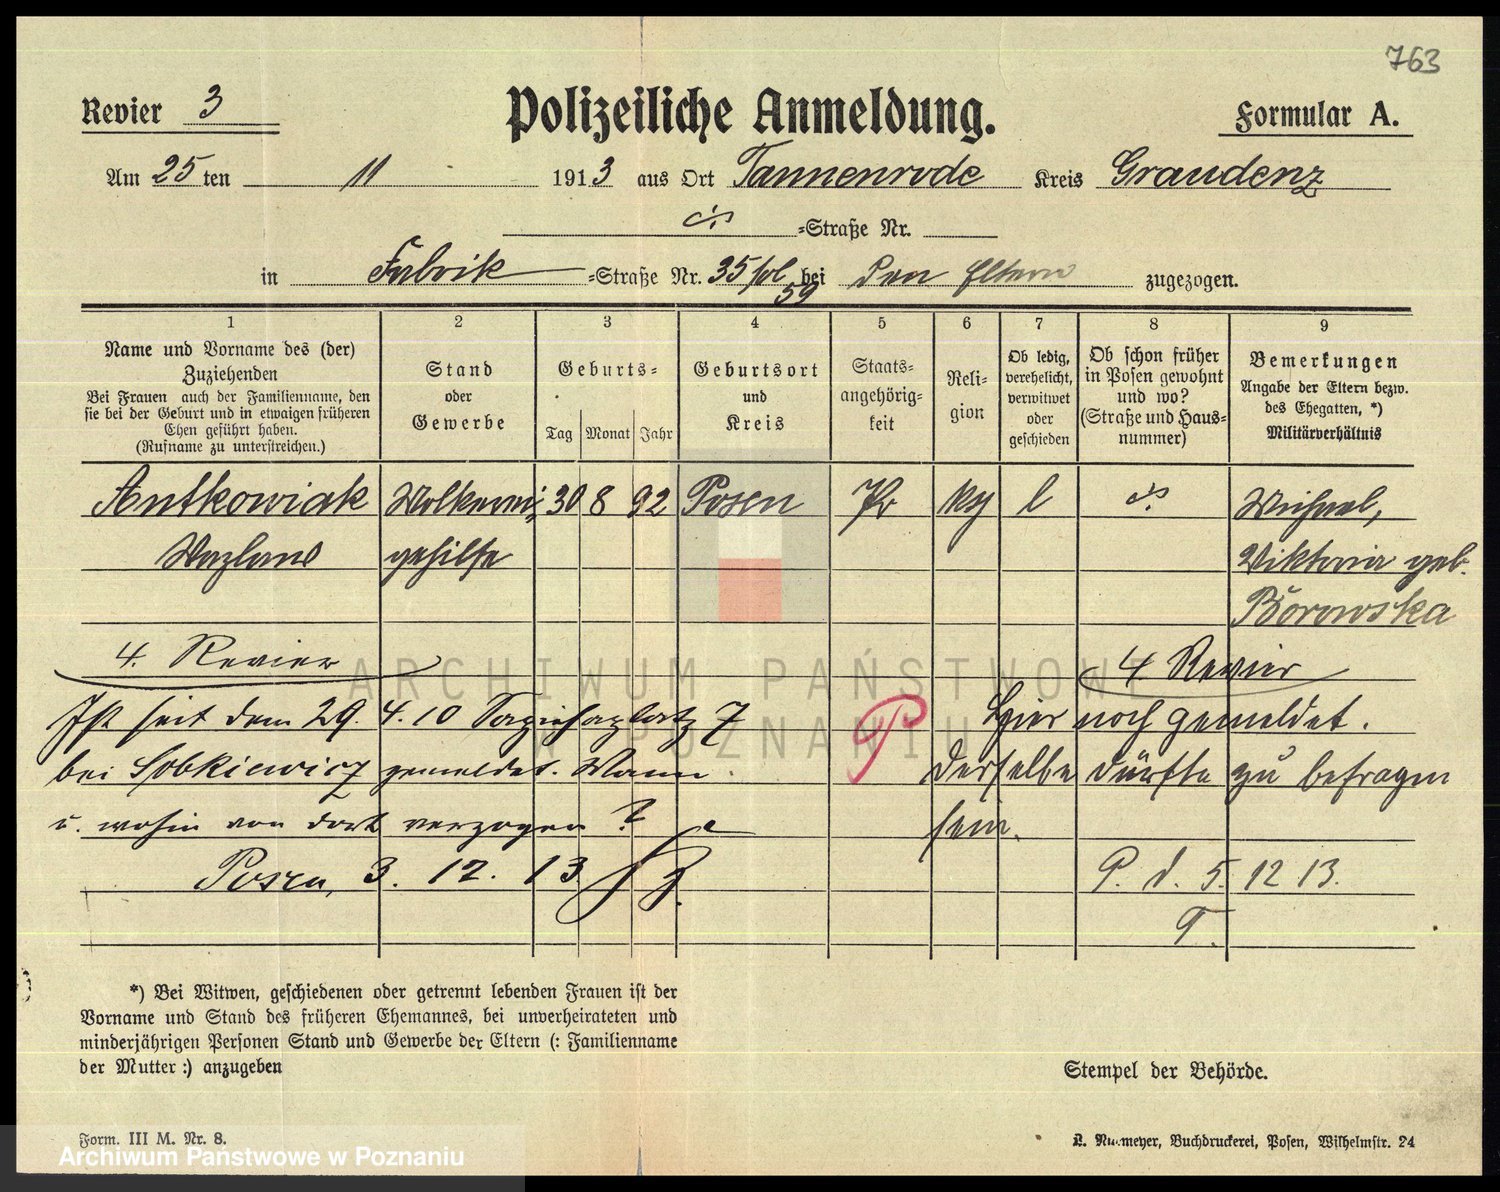 763
Revier 3
Polizeiliche Anmeldung.
Formular A.
Am 25 ten 11 1913 aus Ort Tannenrode Kreis Graudenz
=Straße Nr.
in Fabrik =Straße Nr. 35 bei den Eltern zugezogen.
59
1 2 3 4 5 6 7 8 9
Name und Vorname des (der) Zuziehenden
Bei Frauen auch der Familienname, den sie bei der Geburt und in etwaigen früheren Ehen geführt haben.
(Rufname zu unterstreichen.)
Stand oder Gewerbe
Geburts=
Tag Monat Jahr
Geburtsort und Kreis
Staats-angehörig-keit
Reli-gion
Ob ledig, verehelicht, verwitwet oder geschieden
Ob schon früher in Posen gewohnt und wo? (Straße und Haus-nummer)
Bemerkungen
Angabe der Eltern bezw. des Ehegatten, *)
Militärverhältnis
Antkowiak Molkerei 30 8 92 Posen Pr l
gehilfe Viktoria geb.
Borowska
4. Revier
4 Revier
Ist seit dem 29. 4. 10 Sapiehaplatz 7
Hier noch gemeldet.
bei Sobkiewicz gemeldet. Wann
Derselbe dürfte zu befragen
u. wohin von dort verzogen?
sein.
Posen, 3. 12. 13
P. d. 5. 12 13.
T.
P
*) Bei Witwen, geschiedenen oder getrennt lebenden Frauen ist der
Vorname und Stand des früheren Ehemannes, bei unverheirateten und
minderjährigen Personen Stand und Gewerbe der Eltern (: Familienname
der Mutter :) anzugeben
Stempel der Behörde.
Form. III M. Nr. 8.
Buchdruckerei, Posen, Wilhelmstr. 24
ARCHIWUM PAŃSTWOWE
W POZNANIU
Archiwum Państwowe w Poznaniu